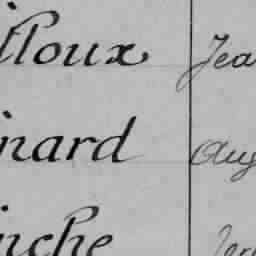 lloux Jea
nard Aug
nche